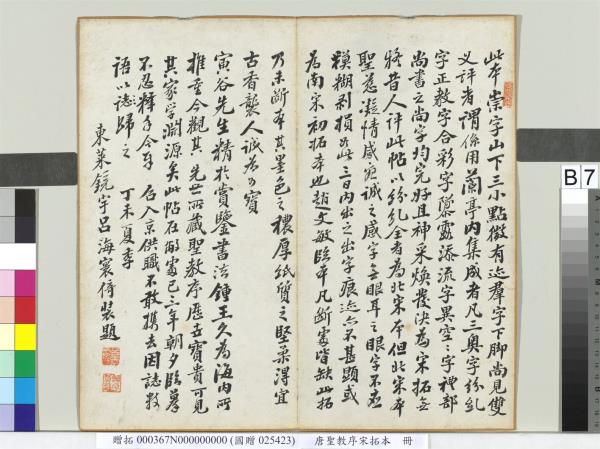 此本崇字山下三小點微有迹羣字下脚尚見雙
义評者謂係用蘭亭內集成者凡三奧字紛糺
字正教字合彩字隳露添流字異空二字裡部
尚書之尚字均完好且神采煥發決為宋拓無
將昔人評此帖以紛糺全者為北宋本但北宋本
聖慈凝情感
感字無眼耳之眼字不應
模糊剥損
內出之出字痕迹亦不甚顯或
為南宋初拓本也趙文敏臨本凡斷處皆缺此拓
乃未斷本其墨色之穠厚紙質之堅柔淂宜
古香襲人誠為可寶
寅谷先生精於賞鑒書法鍾王久為海內所
推至今觀其先世所藏聖教序歷五寶貴可見
其家學淵源矣此帖在敝處已三年朝夕臨摹
不忍釋手今年召入京供職不敢携去因誌數
語以誌歸之 丁未夏季
東萊鏡宇呂海寰偁裝題
B 7
贈拓 000367N000000000 (國贈 025423) 唐聖教序宋拓本 冊